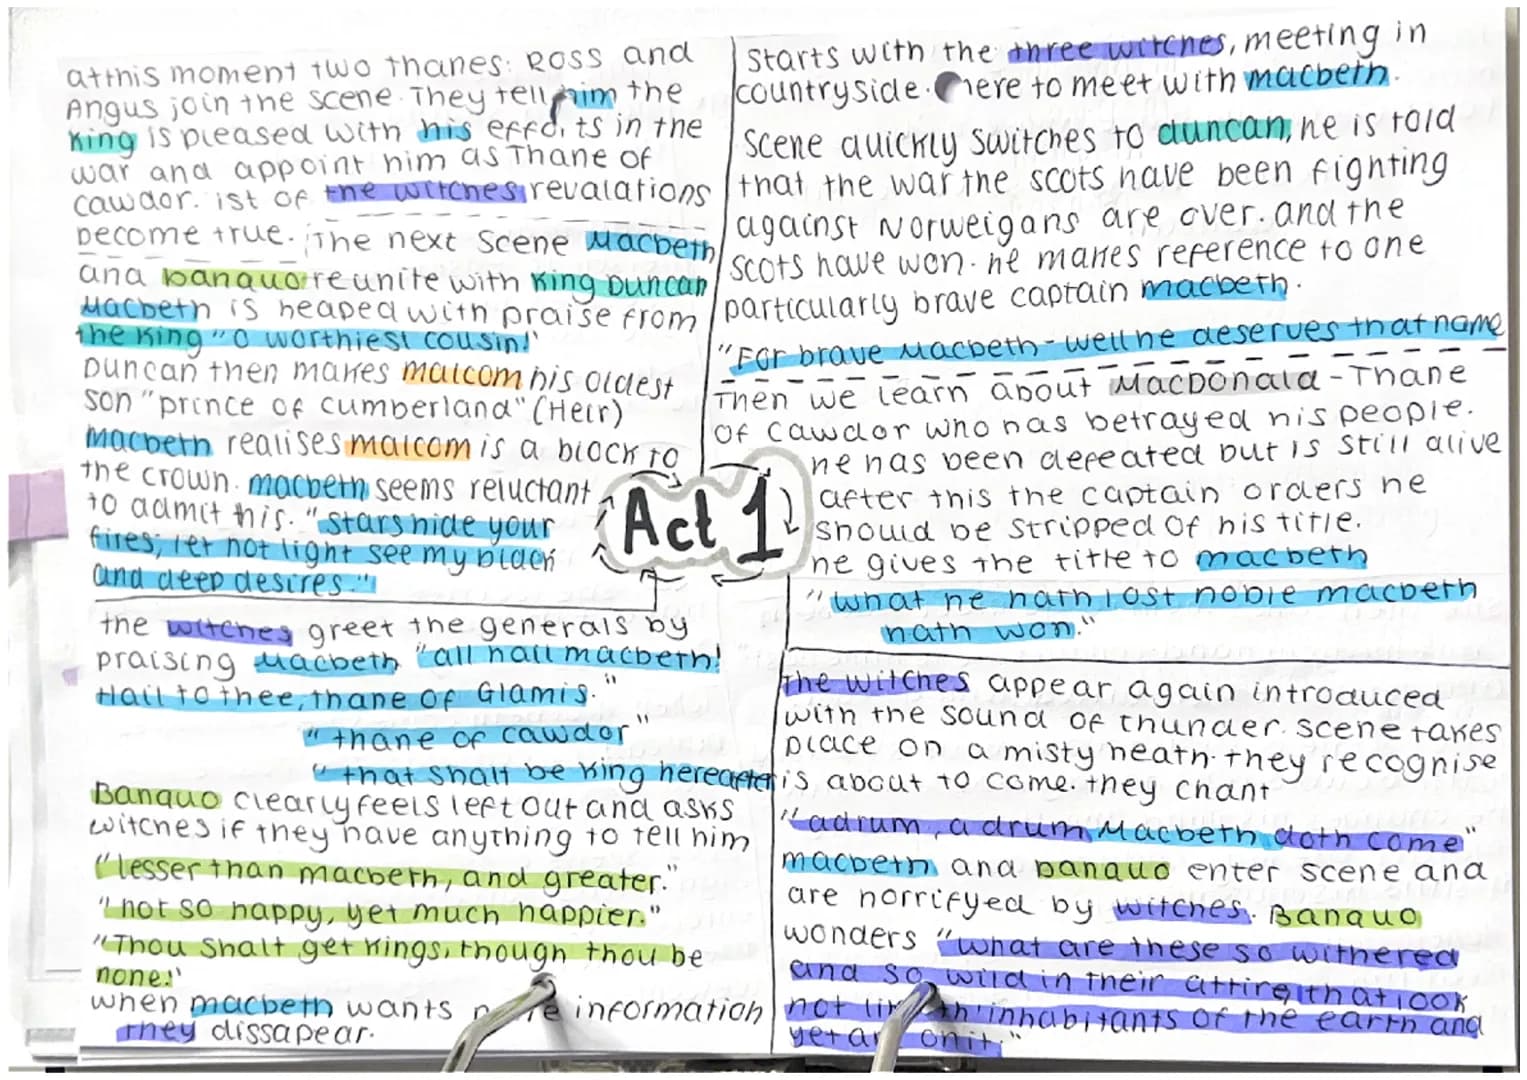 Act 1
Starts with the three witches, meeting in
countryside. to meet with macbeth.
Scene quickly switches to duncan, he is told
that the war the scots have been fighting
against Norweigans are over. and the
scots have won. he makes reference to one
particularly brave captain macbeth.
"For brave Macbeth - well he deserves that name
Then we learn about MacDonald - Thane
of Cawdor who has betrayed his people.
he has been defeated but is still alive
after this the captain orders he
should be stripped of his title.
he gives the title to macbeth
"what he hath lost noble macbeth
hath won."
The witches appear again introduced
with the sound of thunder. scene takes
place on a misty heath. they recognise
is about to come. they chant
"adrum, a drum Macbeth doth come"
macbeth and banquo enter scene and
are horrifyed by witches. Banquo
wonders "what are these so withered
and so wild in their attire, that look
not th' inhabitants of the earth and
yet are onit."
the witches greet the generals by
praising Macbeth "all hail macbeth!
Hail to thee, thane of Glamis."
"thane of cawdor"
"that shalt be king hereafter
Banquo clearly feels left out and asks
witches if they have anything to tell him
"lesser than macbeth, and greater."
"not so happy, yet much happier."
"Thou shalt get kings, though thou be
none!"
when macbeth wants more information
they dissapear.
at this moment two thanes: Ross and
Angus join the scene. They tell him the
king is pleased with his efforts in the
war and appoint him as Thane of
cawdor. 1st of the witches revalations
become true. The next scene Macbeth
and banquo reunite with King Duncan
Macbeth is heaped with praise from
the king "O worthiest cousin!"
Duncan then makes malcom his oldest
son "prince of cumberland" (Heir)
Macbeth realises malcom is a block to
the crown. macbeth seems reluctant
to admit this. "stars hide your
fires; let not light see my black
and deep desires."